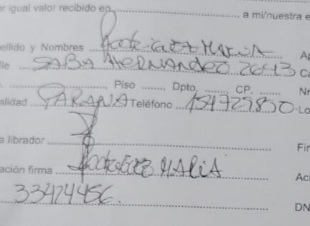 or igual valor recibido en ........ a mi/nuestra e
ellido y Nombres Rodriguez MARIA A
lle SABA HERNANDEZ 2643 C
Piso ....... Dpto ........ CP. ........ N
alidad PARANA Teléfono 154729850 Lo
a librador ........ Fir
ación firma Rodriguez MARIA Acl
33424456. DN